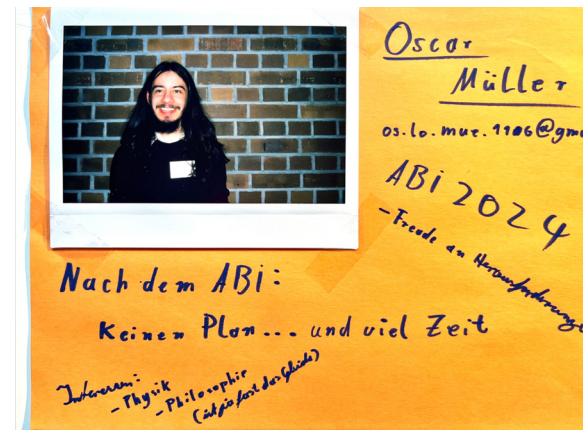 Oscar
Müller
os.lo.mue.1106@gm
ABi 2024
- Freude an Herausforderunge
Nach dem ABi:
Keinen Plan... und viel Zeit
Interessen:
- Physik
- Philosophie
(ist ja fast das Gleiche)